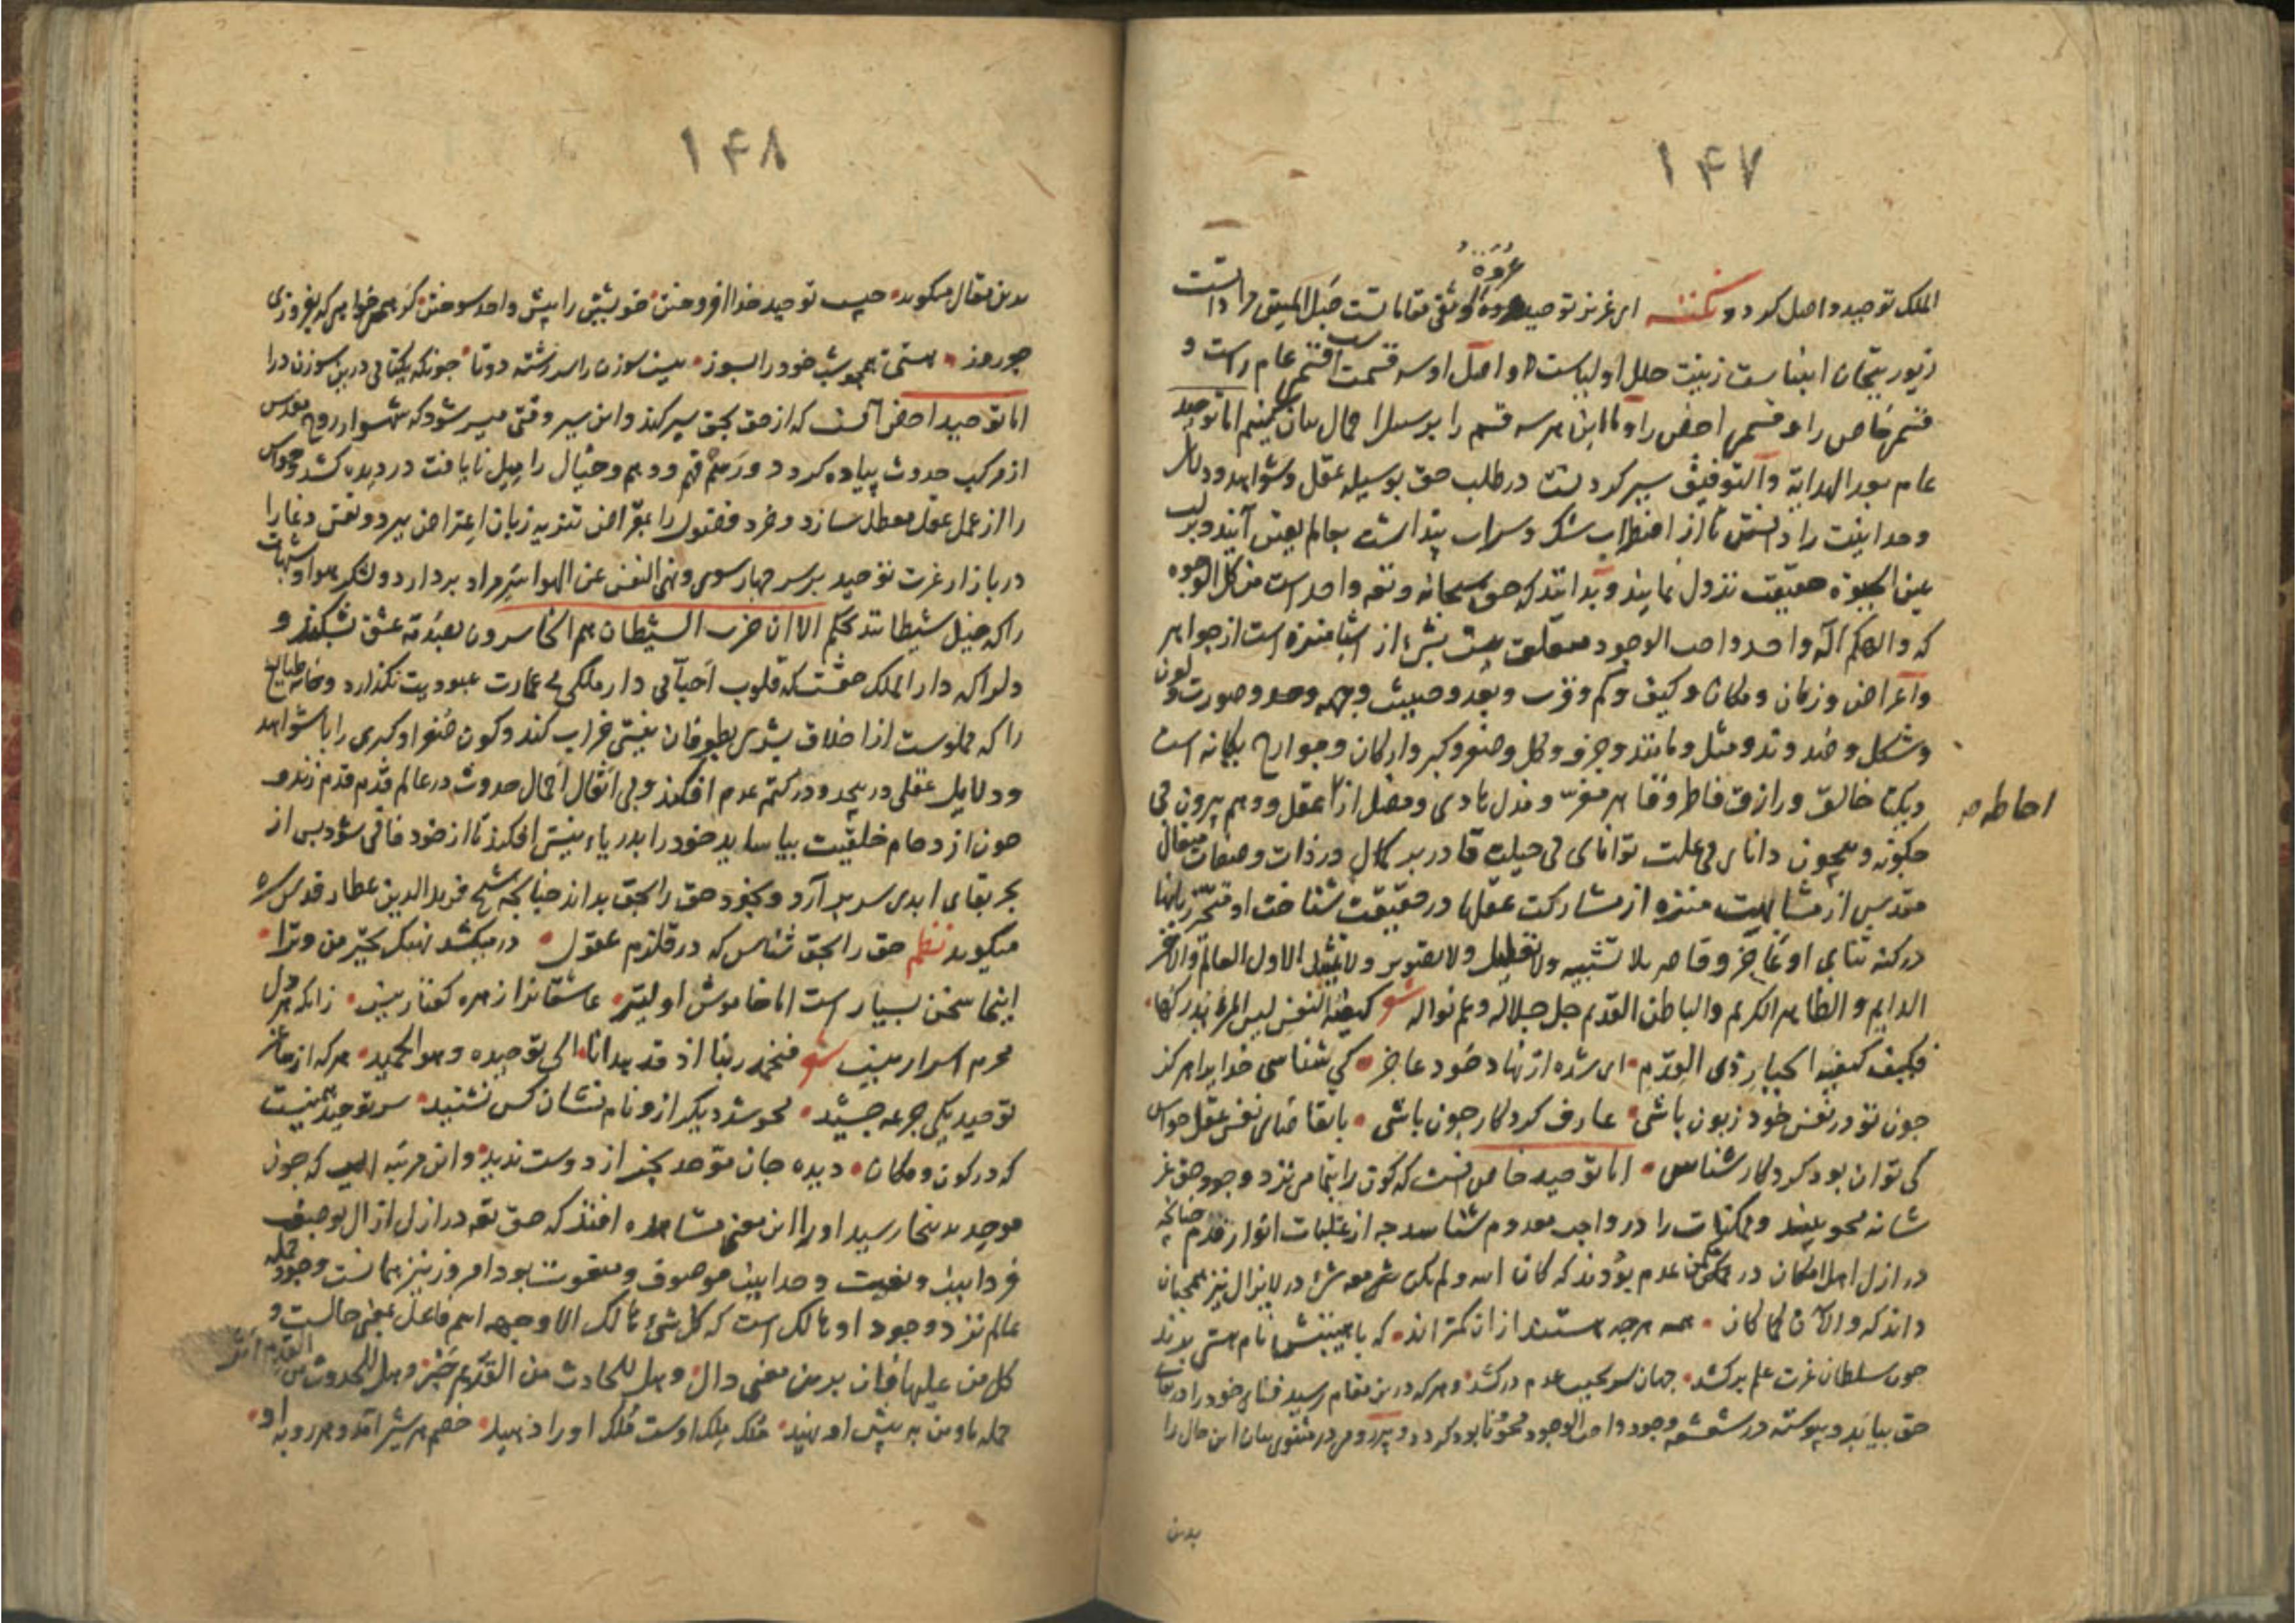 ۱۴۷
الملک توحید واصل کردد و نکته ای عزیز توحید عروة الوثقی مقاماتست حبل المتین
زیور تیجان انبیاست زینت حلل اولیاست و اصل او سه قسمت است قسمی عام راست و
قسمی خاص را و قسمی اخص را و ما این هر سه قسم را بر سبیل اجمال بیان کنیم اما توحید
عام بعد الهدایة والتوفیق سیر کردنست در طلب حق بوسیله عقل و شواهد و دلایل
وحدانیت را دانستن تا از اضطراب شک و سراب پنداشت بعالم یقین آیند و بر لب
عین الحیوة حقیقت نزول نمایند و بدانند که حق سبحانه و تعه واحد است من کل الوجوه
که والهکم اله واحد واجب الوجود متعلق نیست بشیء از اشیا منزه است از جواهر
و اعراض و زمان و مکان و کیف و کم و قرب و بعد و حیث و جهه و حد و صورت و لون
و شکل و ضد و ند و مثل و مانند و جزو و کل و صغر و کبر و ارکان و جوارح یکانه است
احاطه صح
دیکتا خالق و رازق فاطر و قاهر معز و مذل هادی و مضل از عقل و وهم بیرون بی
چکونه و بیچون دانای بی علت توانای بی حیلت قادر بر کمال در ذات و صفات متعال
مقدس از مشابهت منزه از مشارکت عقلها در حقیقت شناخت او متحیر زبانها
در کنه ثنای او عاجز و قاصر بلا تشبیه ولا تعطیل ولا تصویر ولا تمثیل الاول العالم والاخر
الدایم و الظاهر الکریم والباطن القدیم جل جلاله و عم نواله شعر کیفیة النفس لیس المرء یدرکها
فکیف کیفیة الجبار ذی القدم ای شده از نهاد خود عاجز کی شناسی خدایرا هرکز
چون تو در نفس خود زبون باشی عارف کردکار چون باشی با تقاضای نفس عقل و حواس
کی توان بود کردکار شناس اما توحید خاص آنست که کون را بتمامی نزد وجود حق عز
شانه محو بیند و ممکنات را در واجب معدوم شناسد چه از غلبات انوار قدم چنانچه
در ازل اهل امکان در مکمن عدم بودند که کان الله ولم یکن شیء معه شیء در لایزال نیز همچنان
داند که والآن کما کان همه هرچه هستند ازان کمترند که با هستیش نام هستی برند
چون سلطان عزت علم برکشد جهان سر بجیب عدم درکشد و هرکه درین مقام رسید فنای خود را در بقای
حق بیابد و پیوسته در شعشعه وجود واجب الوجود محو و نابود کردد و پیر رومی در مثنوی بیان این حال را
بدین
۱۴۸
بدین مقال میکوید چیست توحید خدا افروختن خویشتن را پیش واحد سوختن کر همی خواهی که بفروزی
چو روز هستی همچو شب خود را بسوز نیست سوزن را سر رشته دوتا چونکه یکتایی درین سوزن درا
اما توحید اخص آنست که از حق بحق سیر کند و این سیر وقتی میسر شود که شهسوار روح مقدس
از مرکب حدوث پیاده کردد و چشم فهم و وهم و خیال را میل نایافت در دیده کشد و حواس
را از عمل عقل معطل سازد و خرد فضول را بمقراض تنزیه زبان اعتراض ببرد و نفس دغا را
در بازار عزت توحید بر سر چهارسوی ونهی النفس عن الهوا سر مراد بردارد و لشکر هوا و شهوات
را که خیل شیطانند بحکم الا ان حزب الشیطان هم الخاسرون بصدمه عشق بشکند و
دلرا که دار الملک حقست که قلوب احبائی دار ملکی بی عمارت عبودیت نکذارد و خانه طبایع
را که مملوست از اخلاق بشری بطوفان نیستی خراب کند و کون صغرا و کبری را با شواهد
و دلایل عقلی در پیچد و در کتم عدم افکند و بی اثقال احمال حدوث در عالم قدم قدم زند و
چون از دحام خلقیت بیاساید خود را بدریای نیستی افکند تا از خود فانی شود پس از
بحر بقای ابدی سر برآرد و بخود حق را بحق بداند چنانچه شیخ فرید الدین عطار قدس سره
میکوید نظم حق را بحق شناس که در قلزم عقول در میکشد نهنک تحیر من و ترا
اینجا سخن بسیار است اما خاموش اولیتر عاشقانرا زهره کفتار نیست زانکه هر دل
محرم اسرار نیست شعر فنحمد ربنا اذ قد هدانا الی توحیده وهو الحمید هر که از جام
توحید یکی جرعه چشید محو شد دیکر ازو نام و نشان کس نشنید سر توحید همینست
که در کون و مکان دیده جان موحد بجز از دوست ندید و این مرتبه الیست که چون
موحد بدینجا رسید او را این معنی مشاهده افتد که حق تعه در ازل آزال بوصف
فردانیت و نعت وحدانیت موصوف و منعوت بود امروز نیز همانست وجود جمله
عالم نزد وجود او هالک است که کل شیء هالک الا وجهه اسم فاعل بمعنی حالست و
کل من علیها فان بدین معنی دال و هل للحادث من القدیم خبر و هل للحدوث من القدم اثر
جمله ما و من به پیش او نهید ملک ملک اوست ملک او را دهید خصم هر شیر آمد و هر روبه او